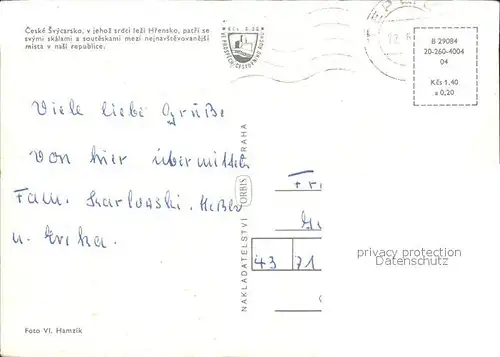 České Švýcarsko, v jehož srdci leží Hřensko, patří se
svými skálami a soutěskami mezi nejnavštěvovanější
místa v naší republice.
Kčs 0,20
B 29084
20-260-4004
04
Kčs 1,40
a 0,20
Viele liebe Grüße
von hier übermitteln
Fam.
u. Erika.
NAKLADATELSTVÍ ORBIS PRAHA
43 71
privacy protection
Datenschutz
Foto Vl. Hamzík